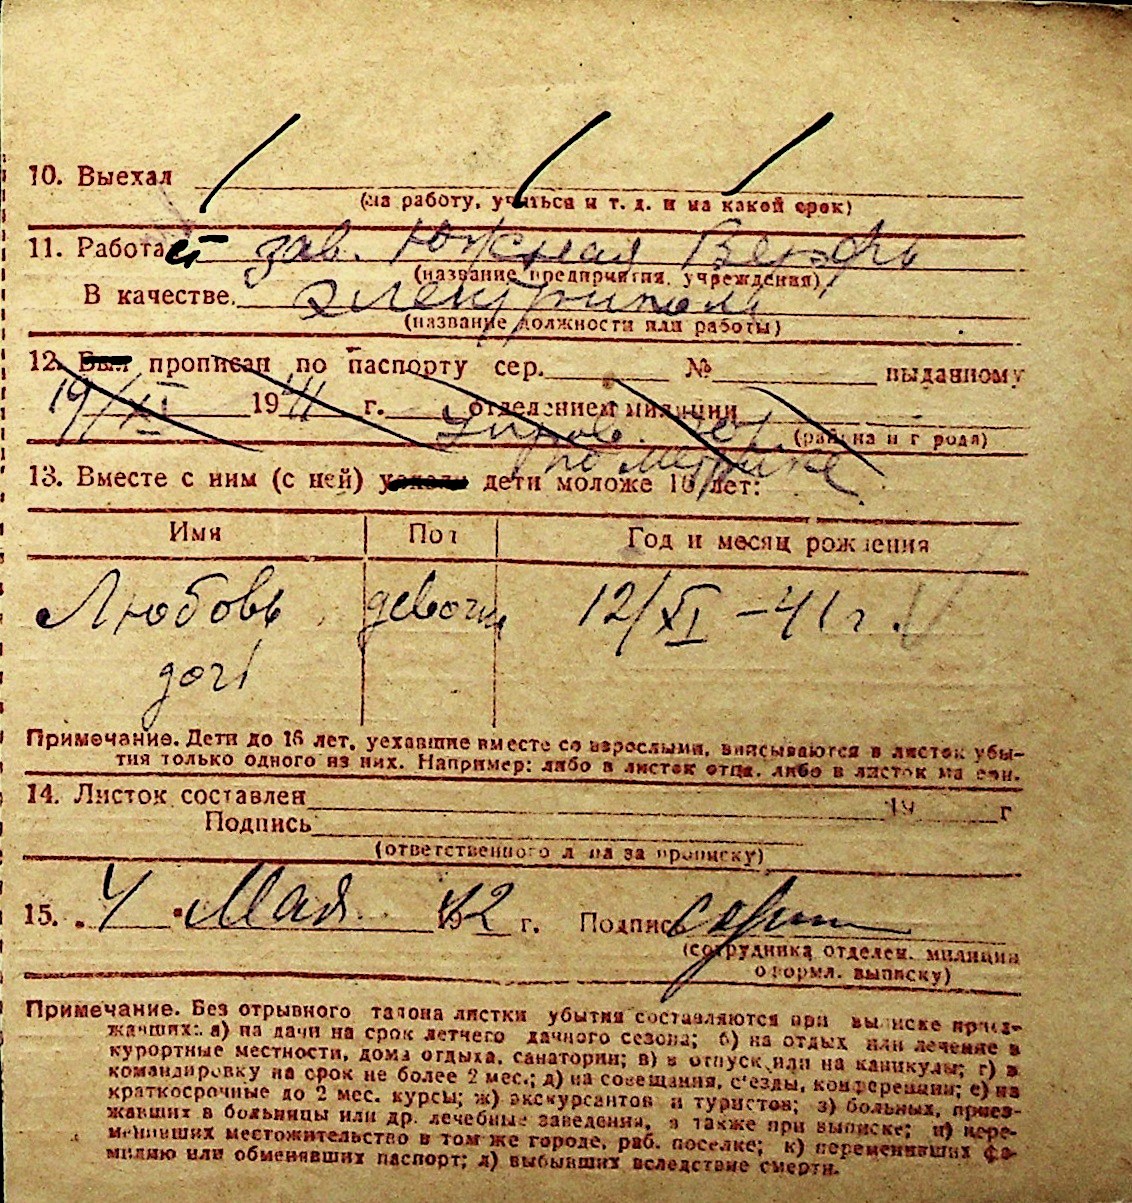 10. Выехал
(на работу, учиться и т. д. и на какой срок)
11. Работает зав. Южная Верфь
(название предприятия, учреждения)
В качестве
(название должности или работы)
12. Был прописан по паспорту сер. № выданному
19/XI 1941 г. отделением милиции
(района и города)
13. Вместе с ним (с ней) уехали дети моложе 16 лет:
Имя Пол Год и месяц рождения
Любовь девочк 12/XI -41 г.
дочь
Примечание. Дети до 16 лет, уехавшие вместе со взрослыми, вписываются в листок убы-
тия только одного из них. Например: либо в листок отца, либо в листок матери.
14. Листок составлен 19 г
Подпись
(ответственного лица за прописку)
15. 4 Мая 1942 г. Подпись
(сотрудника отделен. милиции
оформл. выписку)
Примечание. Без отрывного талона листки убытия составляются при выписке приез-
жавших: а) на дачи на срок летнего дачного сезона; б) на отдых или лечение в
курортные местности, дома отдыха, санатории; в) в отпуск или на каникулы; г) в
командировку на срок не более 2 мес.; д) на совещания, с'езды, конференции; е) на
краткосрочные до 2 мес. курсы; ж) экскурсантов и туристов; з) больных, приез-
жавших в больницы или др. лечебные заведения, а также при выписке; и) пере-
менивших местожительство в том же городе, раб. поселке; к) переменивших фа-
милию или обменявших паспорт; л) выбывших вследствие смерти.